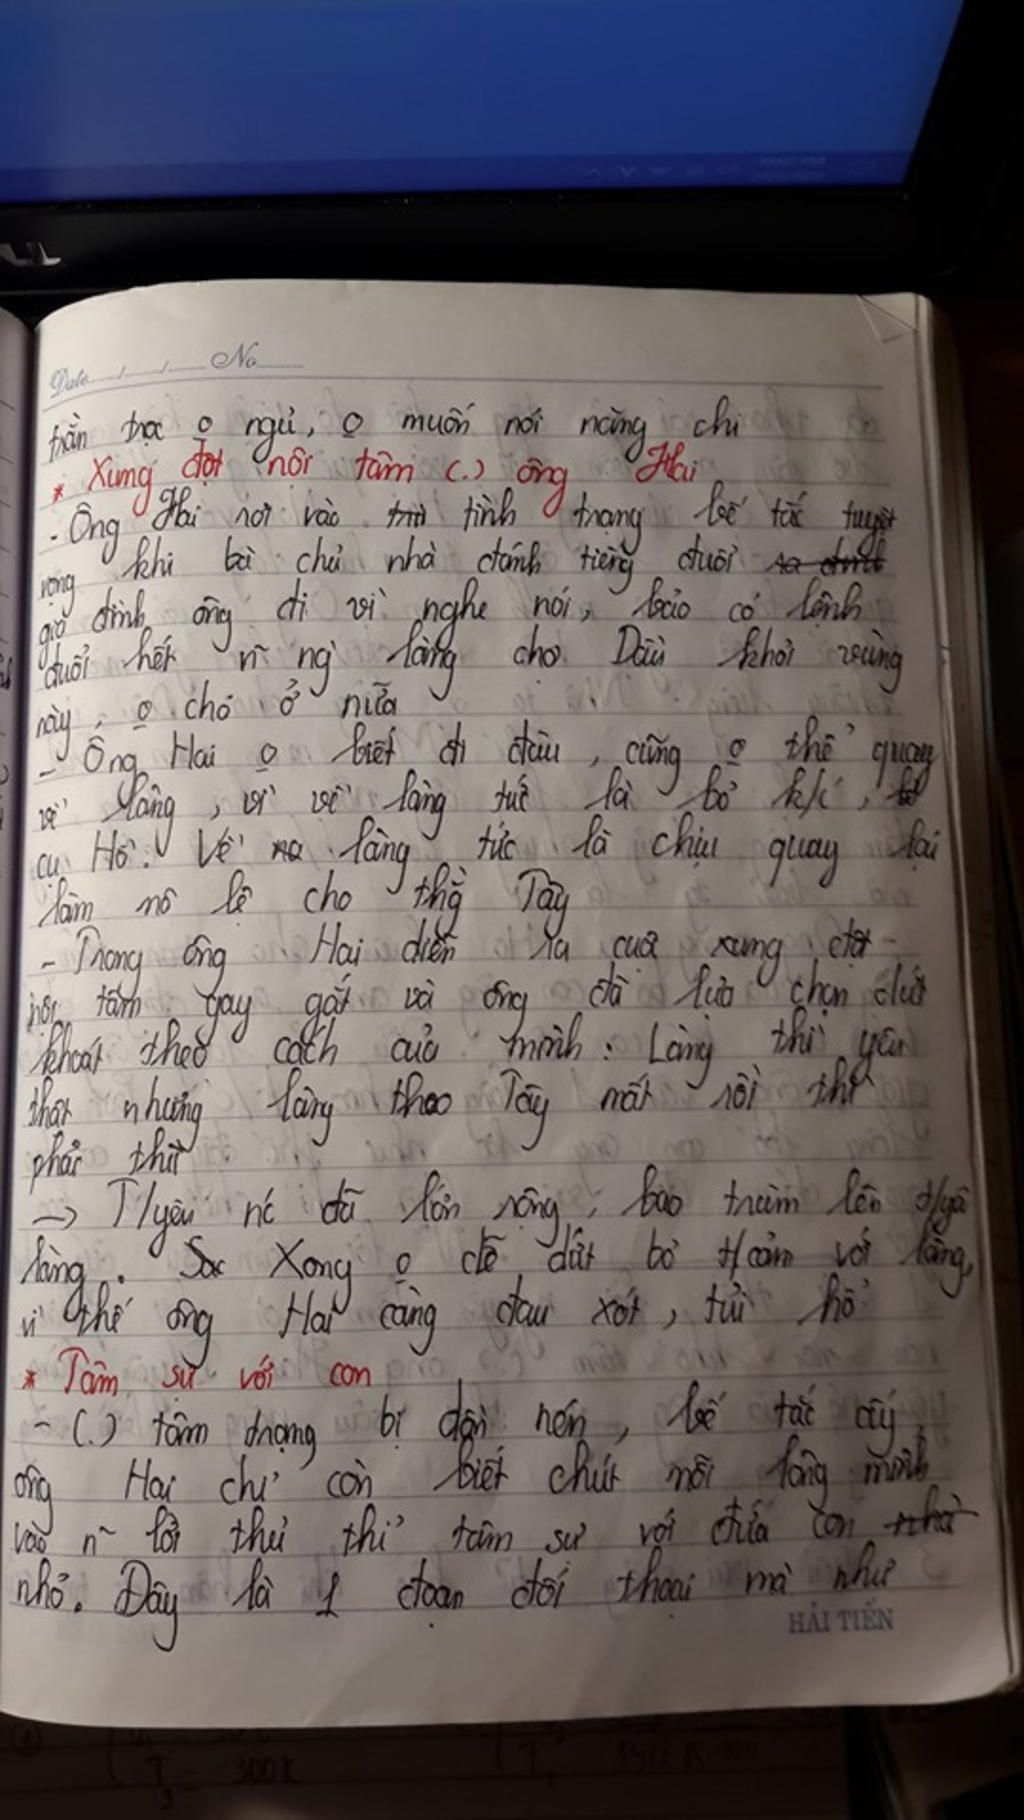 Date...../...../........ No.........
trằn trọc o̲ ngủ, o̲ muốn nói năng chi
* Xung đột nội tâm (.) ông Hai
- Ông Hai rơi vào tình trạng bế tắc tuyệt
vọng khi bà chủ nhà đánh tiếng đuổi
gia đình ông đi vì nghe nói, bảo có lệnh
đuổi hết n~ ng` làng chợ Dầu khỏi vùng
này, o̲ cho ở nữa
- Ông Hai o̲ biết đi đâu, cũng o̲ thể quay
về làng, vì về làng tức là bỏ k/c, bỏ
cụ Hồ. Về làng tức là chịu quay lại
làm nô lệ cho thg` Tây
- Trong ông Hai diễn ra cuộc xung đột
nội tâm gay gắt và ông đã lựa chọn dứt
khoát theo cách của mình: Làng thì yêu
thật nhưng làng theo Tây mất rồi thì
phải thù
-> T/yêu nc' đã lớn rộng, bao trùm lên t/yêu
làng. Xong o̲ dễ dứt bỏ t/cảm với làng,
vì thế ông Hai càng đau xót, tủi hổ
* Tâm sự với con
- (.) tâm trạng bị dồn nén, bế tắc ấy,
ông Hai chỉ còn biết chút nỗi lòng mình
vào n~ lời thủ thỉ tâm sự với đứa con
nhỏ. Đây là 1 đoạn đối thoại mà như
HẢI TIẾN